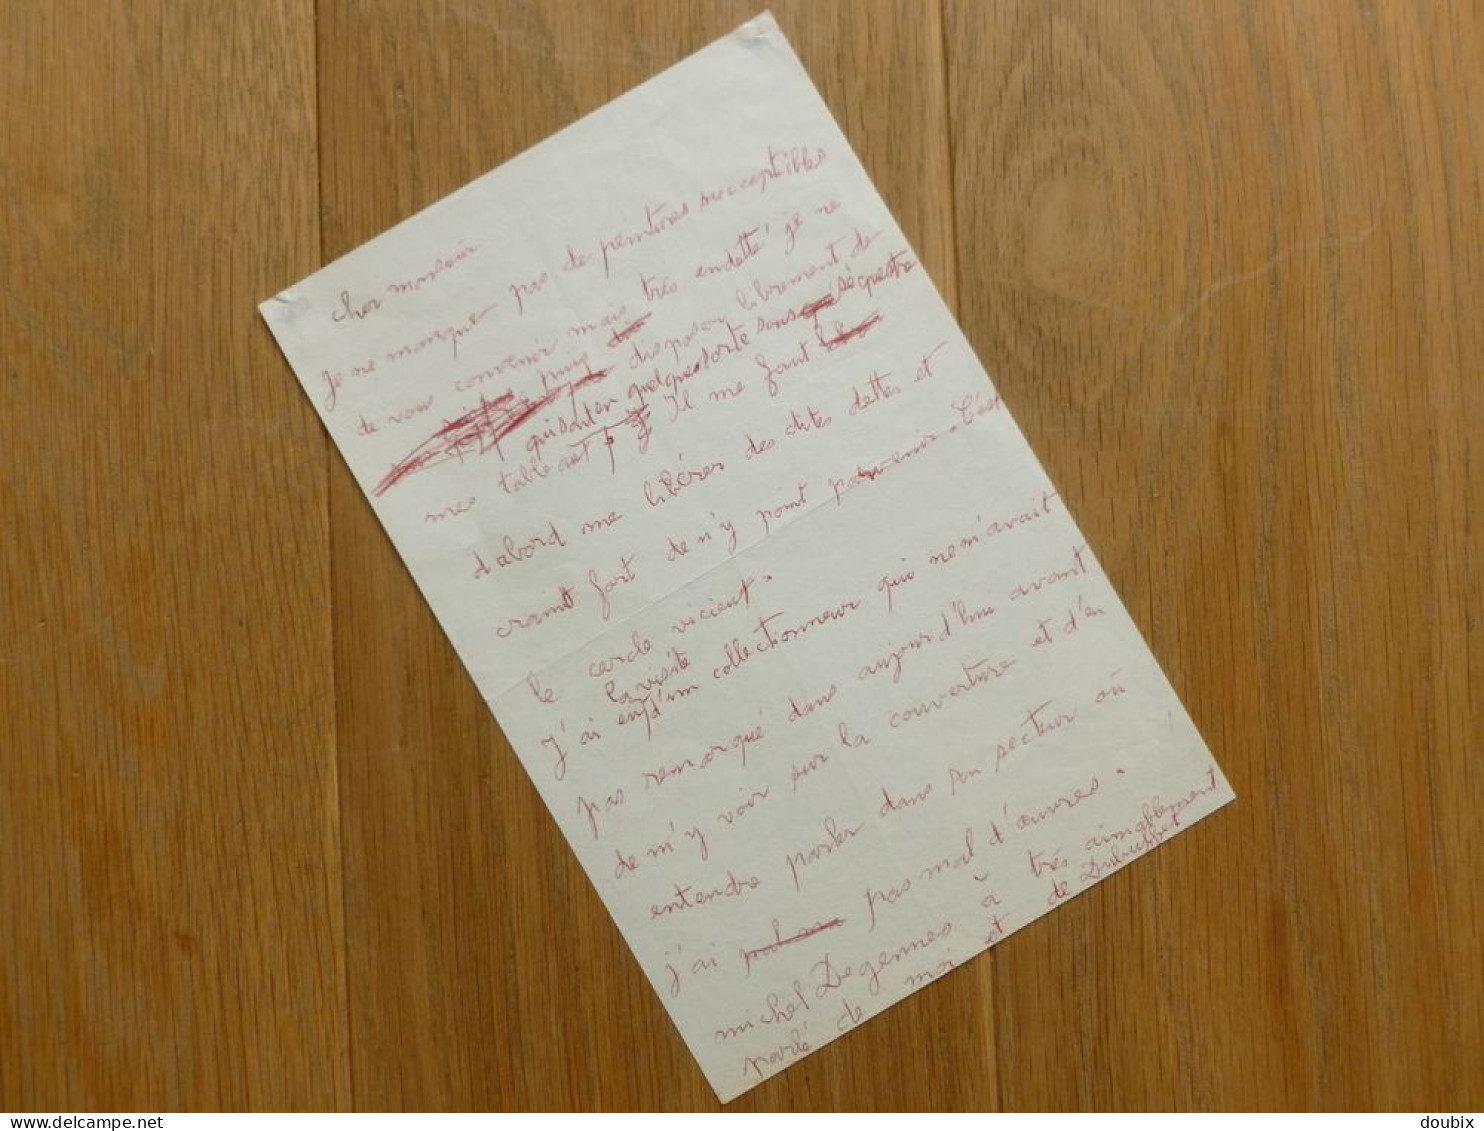 cher monsieur
Je ne manque pas de peintures succeptibles
de vous convenir mais très endetté je ne
puis disposer librement de
qui sont en quelques sorte sous séquestre
mes tableaux Il me faut
d'abord me libérer des dites dettes et
craint fort de n'y point parvenir. C'est
le cercle vicieux.
la visite
J'ai eu d'un collectionneur qui ne m'avait
pas remarqué dans aujourd'hui avant
de m'y voir sur la couverture et d'en
entendre parler dans son secteur où
j'ai pas mal d'œuvres.
michel Degennes à très aimablement
parlé de moi et de Dubuffet
delcampe.net
doubix